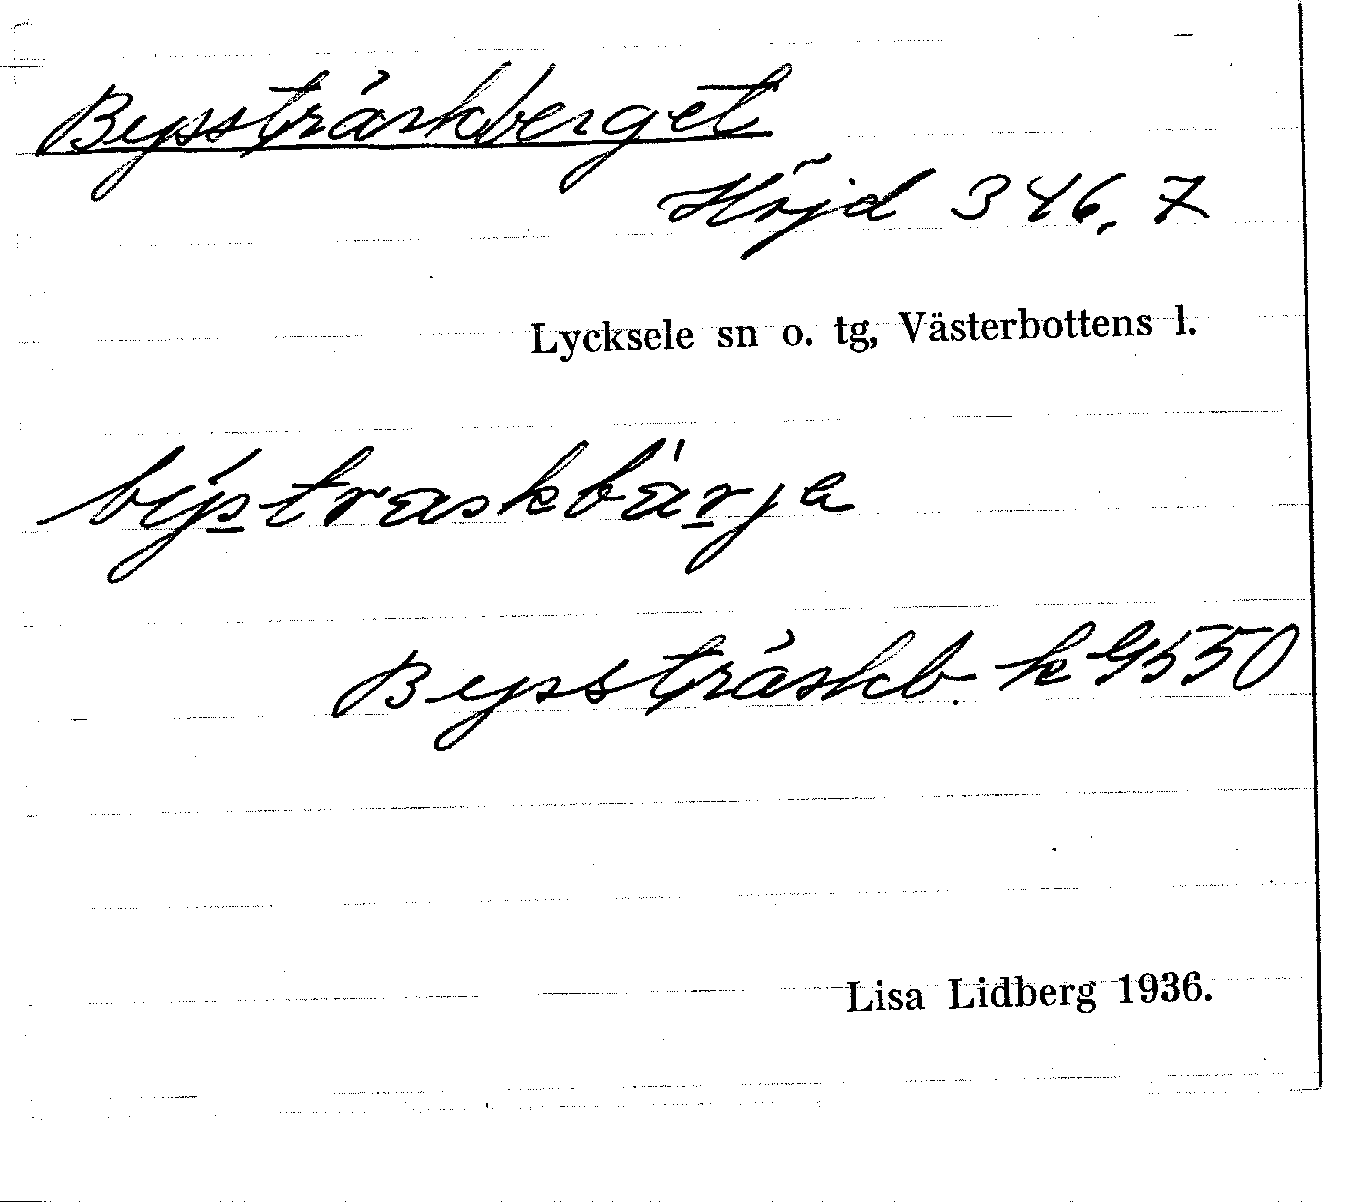 Byssträskberget
Höjd 346,7
Lycksele sn o. tg, Västerbottens l.
býstraskbàrja
Byssträskb. k G 550
Lisa Lidberg 1936.